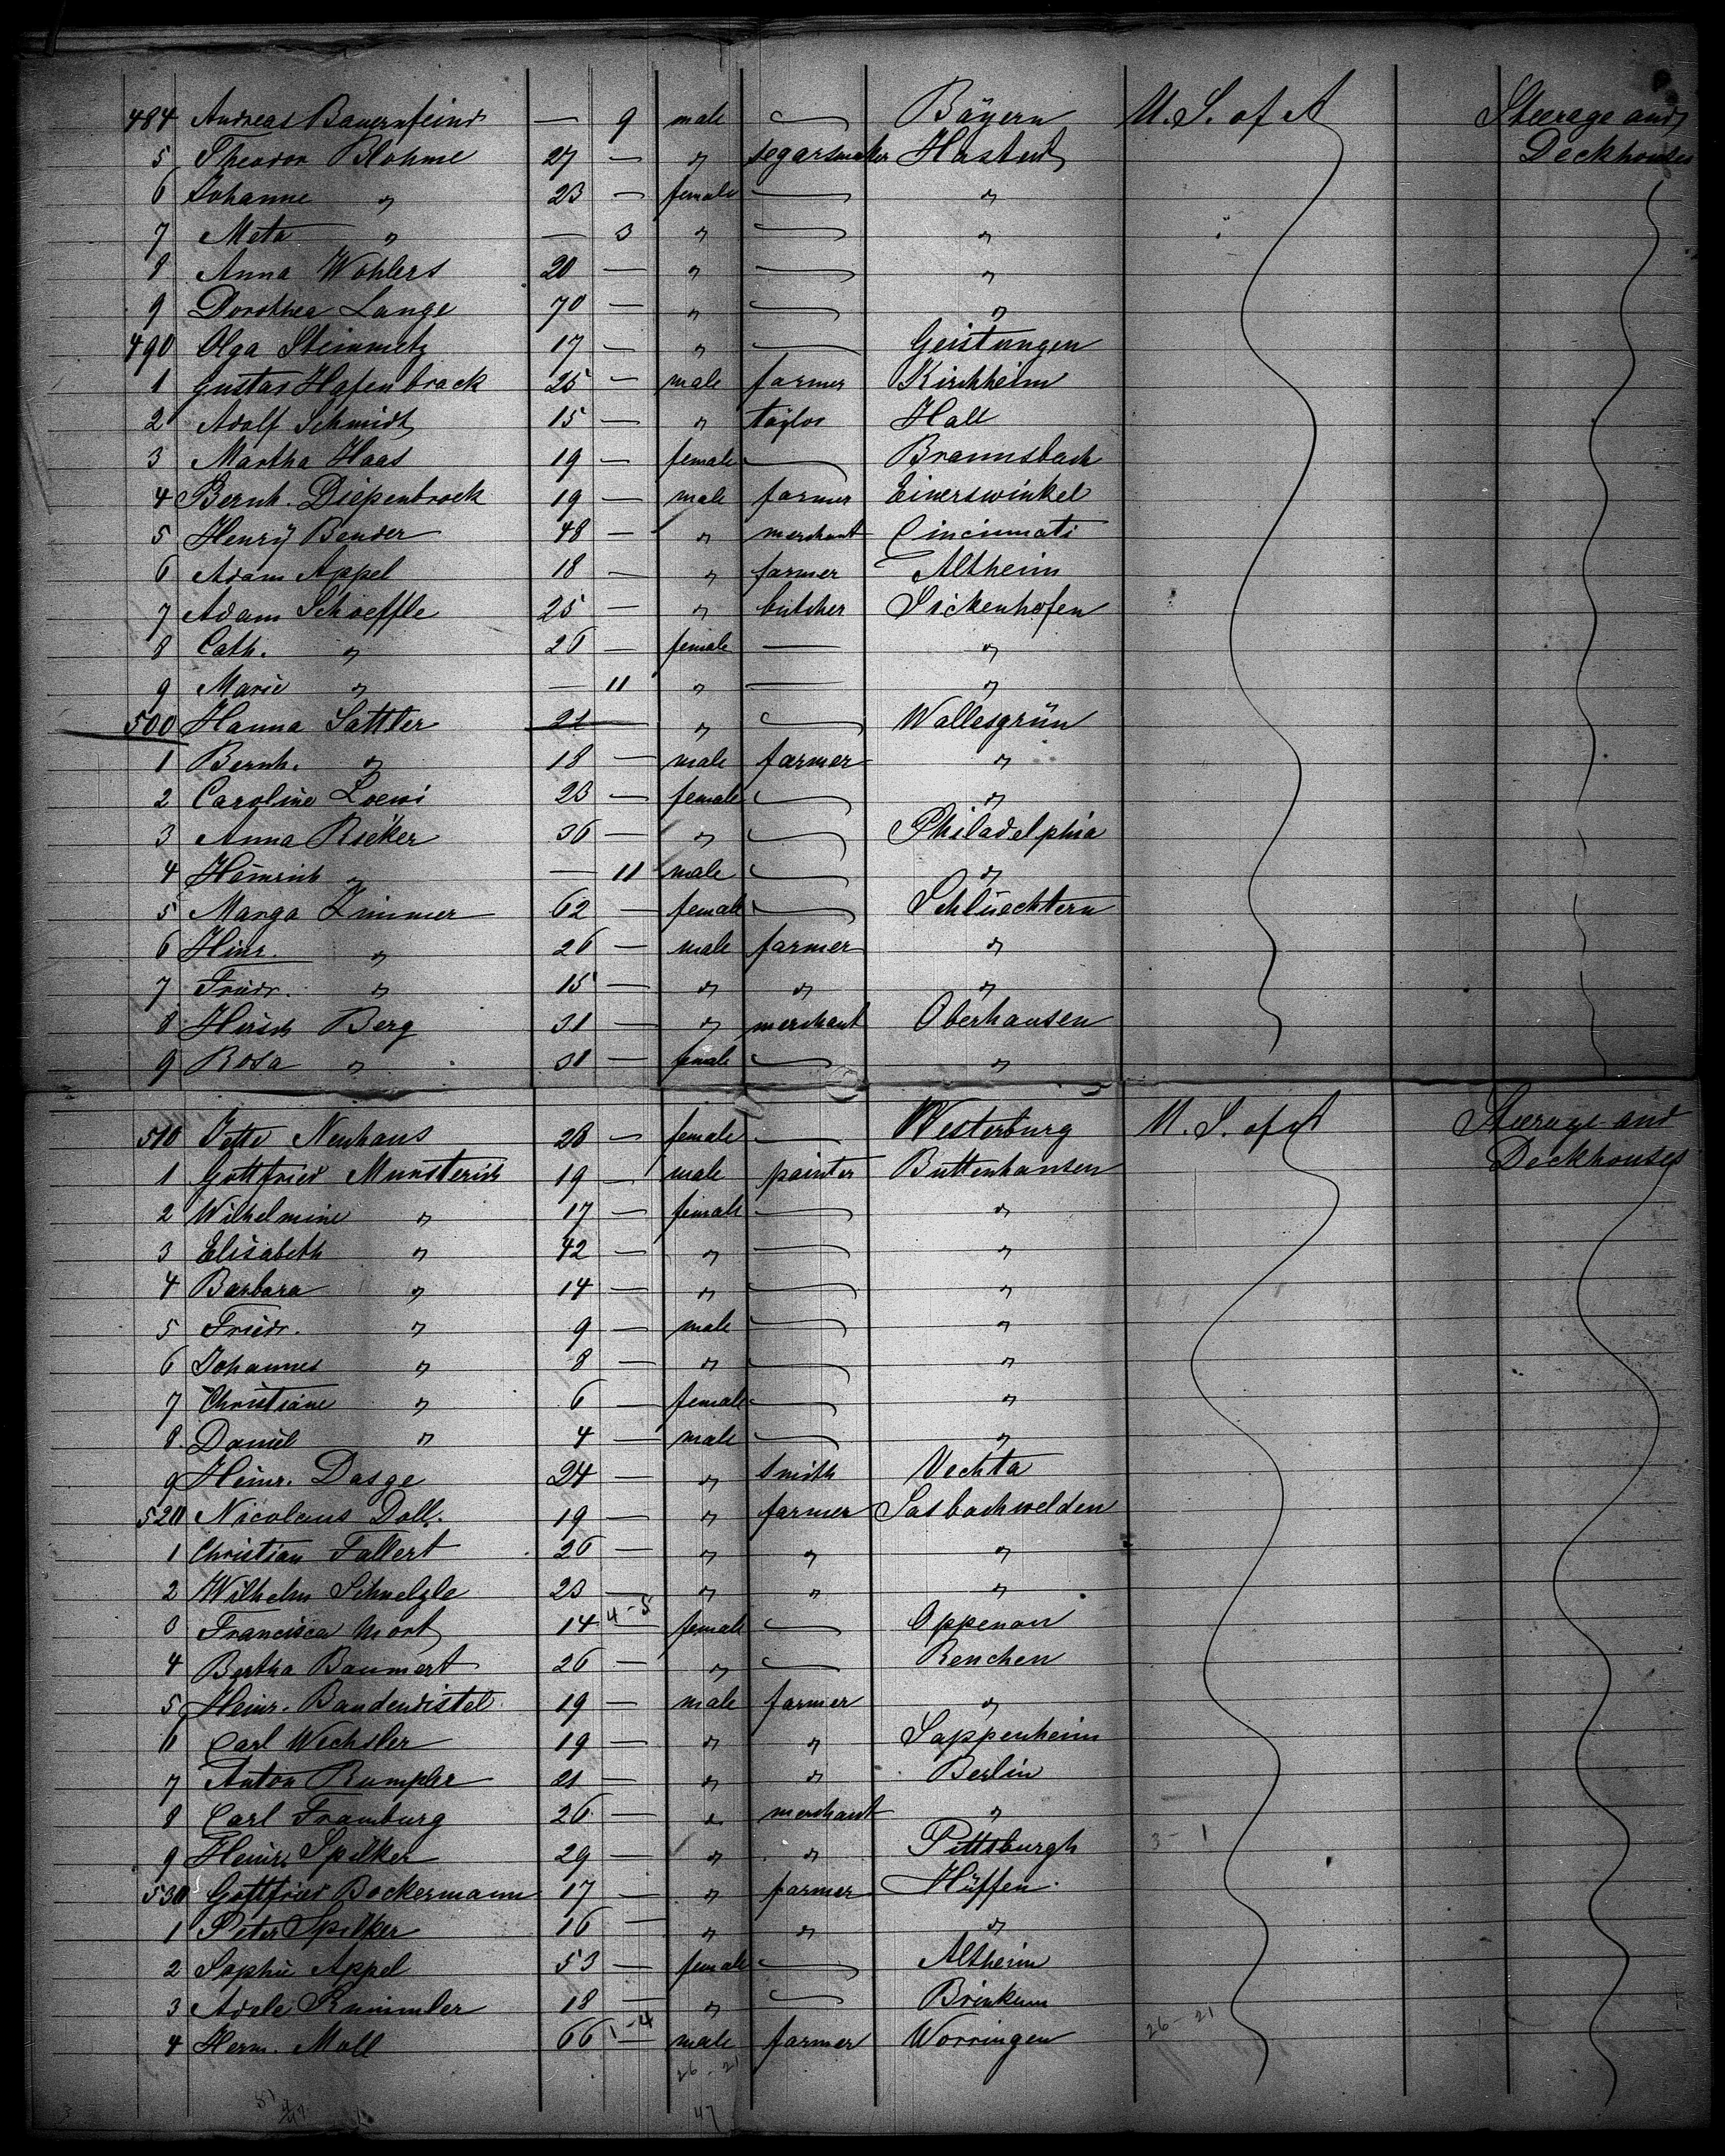 484 Andreas Bauernfeind — 9 male — Bäyern U. S. of A Steerage and
5 Theodor Blohme 27 — " segarsmaker Hastedt Deckhouses
6 Johanne " 23 — female — "
7 Meta " — 3 " — "
8 Anna Wohlers 20 — " — "
9 Dorothea Lange 70 — " — "
490 Olga Steinmetz 17 — " — Geistungen
1 Gustav Hafenbrack 25 — male farmer Kirchheim
2 Adolf Schmidt 15 — " taylor Hall
3 Martha Haas 19 — female — Braunsbach
4 Bernh. Diepenbrock 19 — male farmer Einerswinkel
5 Henry Bender 48 — " merchant Cincinnati
6 Adam Appel 18 — " farmer Altheim
7 Adam Schoeffle 25 — " butcher Sickenhofen
8 Cath. " 26 — female — "
9 Marie " — 11 " — "
500 Hanna Sattler 21 — " — Wallesgrün
1 Bernh. " 18 — male farmer "
2 Caroline Loewi 23 — female — "
3 Anna Rieker 36 — " — Philadelphia
4 Heinrich " — 11 male — "
5 Marga Zimmer 62 — female — Schluechtern
6 Hinr. " 26 — male farmer "
7 Friedr. " 15 — " " "
8 Hirsch Berg 31 — " merchant Oberhausen
9 Rosa " 31 — female — "
510 Jette Neuhaus 28 — female — Westerburg U. S. of A Steerage and
1 Gottfried Munsterich 19 — male painter Buttenhausen Deckhouses
2 Wilhelmine " 17 — female — "
3 Elisabeth " 42 — " — "
4 Barbara " 14 — " — "
5 Friedr. " 9 — male — "
6 Johannes " 8 — " — "
7 Christiane " 6 — female — "
8 Daniel " 4 — male — "
9 Heinr. Dasge 24 — " smith Vechta
520 Nicolaus Doll. 19 — " farmer Sasbachwelden
1 Christian Fallert 26 — " " "
2 Wilhelm Schnelzle 23 — " " "
3 Francisca Mort 14 4-5 — female — Oppenau
4 Bertha Baumert 26 — " — Renchen
5 Heinr. Bandendistel 19 — male farmer "
6 Carl Wechsler 19 — " " Sappenheim
7 Anton Rumpler 21 — " " Berlin
8 Carl Framburg 26 — " merchant "
9 Heinr. Spilker 29 — " " Pittsburgh 3-1
530 Gottfried Bockermann 17 — " farmer Hüffen
1 Peter Spilker 16 — " " "
2 Sophie Appel 53 — female — Altheim
3 Adele Kümmler 18 — " — Brinkum
4 Herm. Moll 66 1-4 — male farmer Worringen 26-21
26-21
47